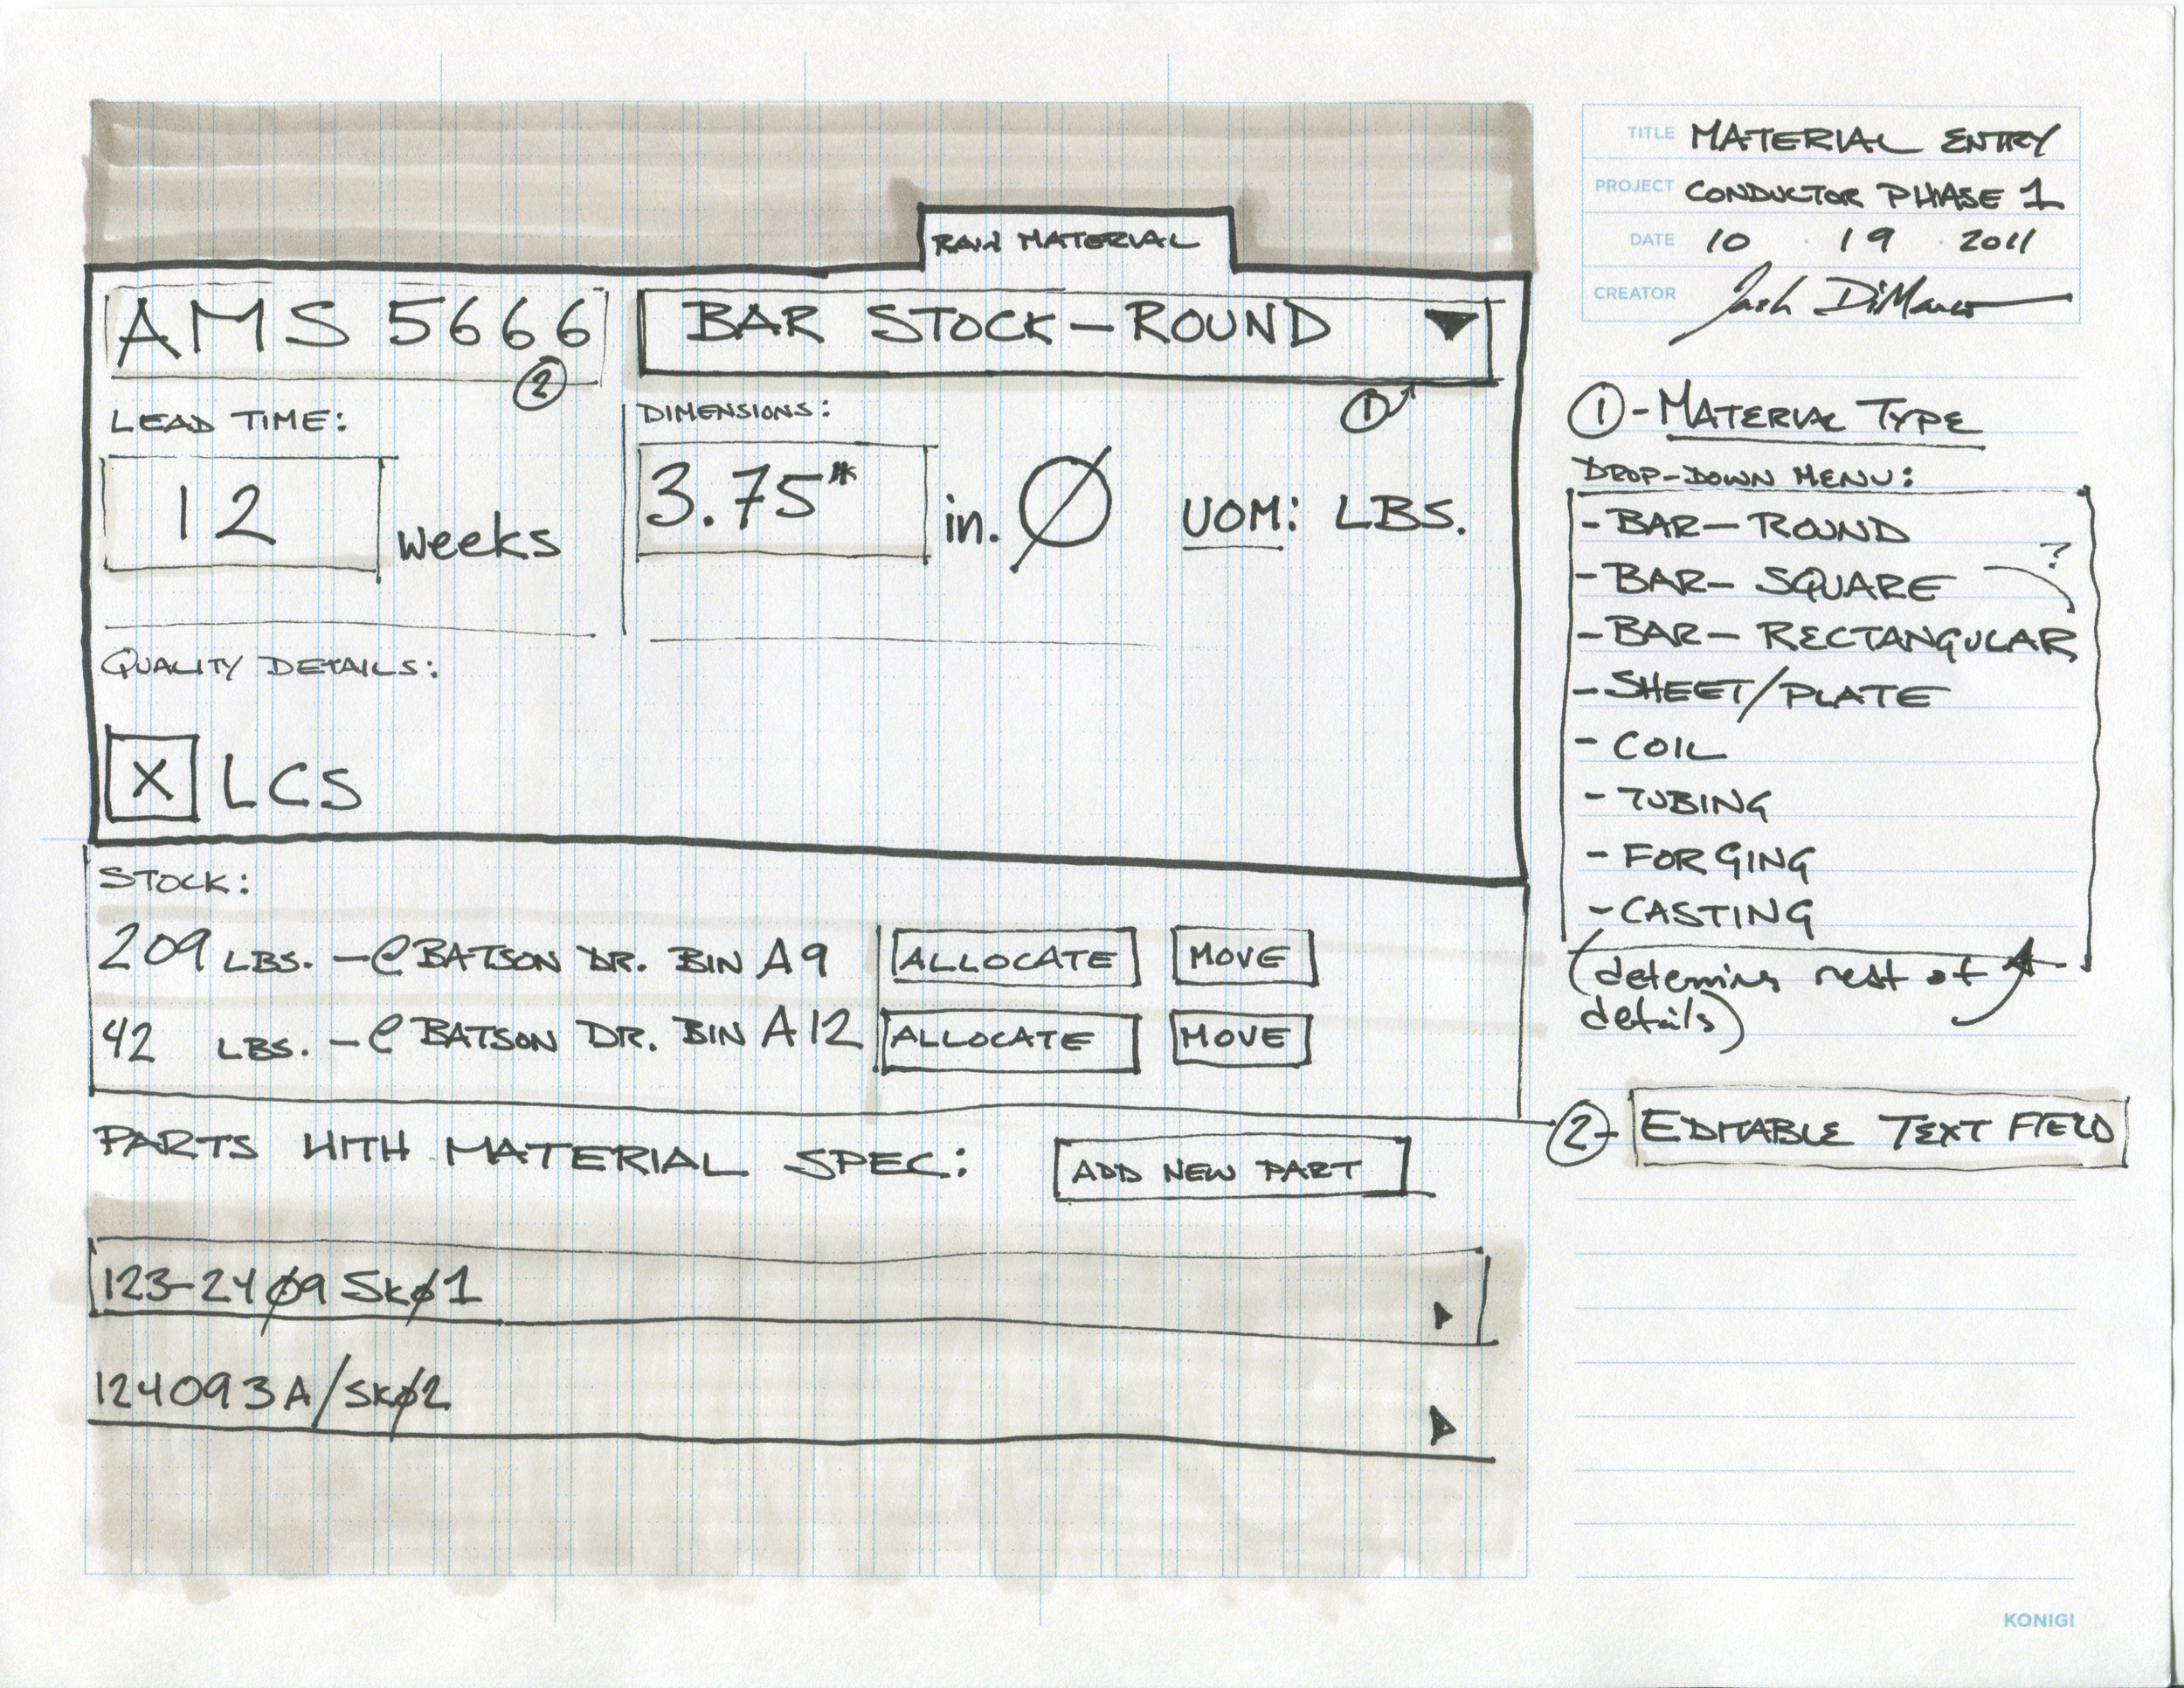 RAW MATERIAL
AMS 5666
②
BAR STOCK - ROUND
①
LEAD TIME:
12 weeks
DIMENSIONS:
3.75" in. Ø UOM: LBS.
QUALITY DETAILS:
X LCS
STOCK:
209 LBS. - @ BATSON DR. BIN A9 ALLOCATE MOVE
42 LBS. - @ BATSON DR. BIN A12 ALLOCATE MOVE
PARTS WITH MATERIAL SPEC: ADD NEW PART
123-24Ø9 SKØ1
124093A/SKØ2
TITLE MATERIAL ENTRY
PROJECT CONDUCTOR PHASE 1
DATE 10 · 19 · 2011
CREATOR Josh DiMarco
① - MATERIAL TYPE
DROP-DOWN MENU:
- BAR - ROUND
- BAR - SQUARE ?
- BAR - RECTANGULAR
- SHEET/PLATE
- COIL
- TUBING
- FORGING
- CASTING
(determins rest of
details)
② - EDITABLE TEXT FIELD
KONIGI